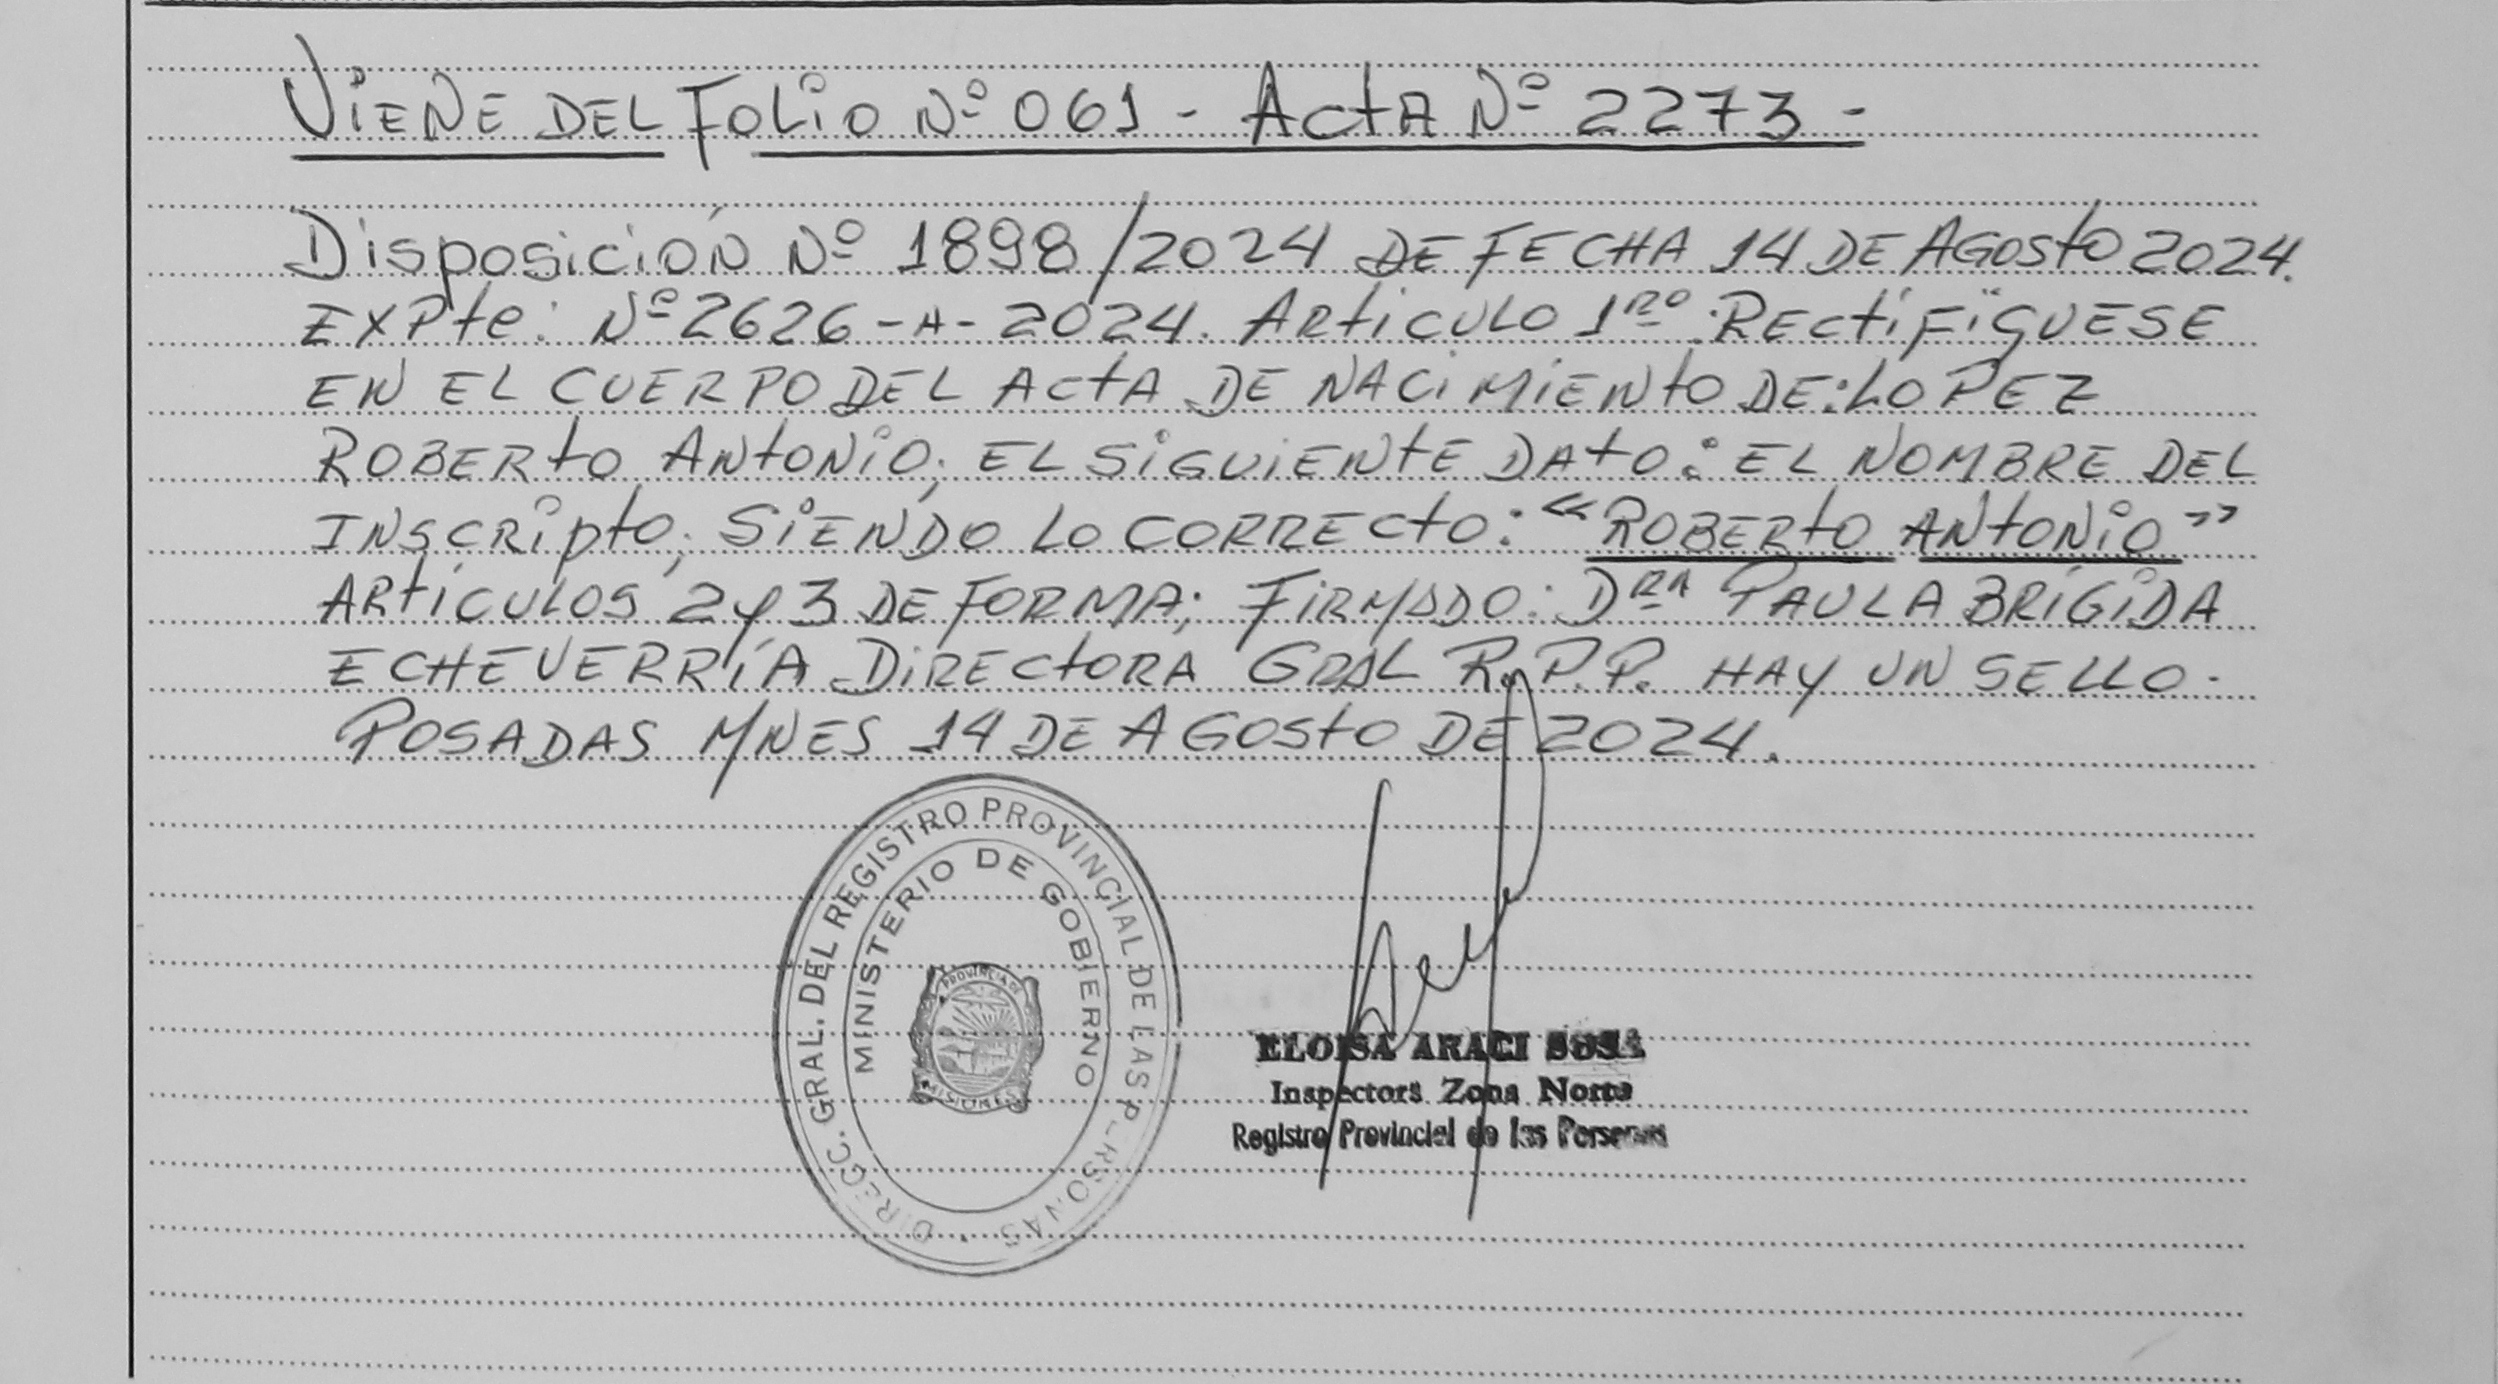 VIENE DEL FOLIO Nº 061 - ACTA Nº 2273 -
DISPOSICIÓN Nº 1898/2024 DE FECHA 14 DE AGOSTO 2024.
EXPTE: Nº 2626-A-2024. ARTICULO 1RO: RECTIFIQUESE
EN EL CUERPO DEL ACTA DE NACIMIENTO DE: LOPEZ
ROBERTO ANTONIO, EL SIGUIENTE DATO: EL NOMBRE DEL
INSCRIPTO; SIENDO LO CORRECTO: "ROBERTO ANTONIO"
ARTÍCULOS 2 y 3 DE FORMA; FIRMADO: DRA PAULA BRÍGIDA
ECHEVERRÍA DIRECTORA GRAL R.P.P. HAY UN SELLO.
POSADAS MNES 14 DE AGOSTO DE 2024.
DIRECC. GRAL. DEL REGISTRO PROVINCIAL DE LAS PERSONAS
MINISTERIO DE GOBIERNO
PROVINCIA DE
MISIONES
ELOISA ARACI SOSA
Inspectora Zona Norte
Registro Provincial de las Personas